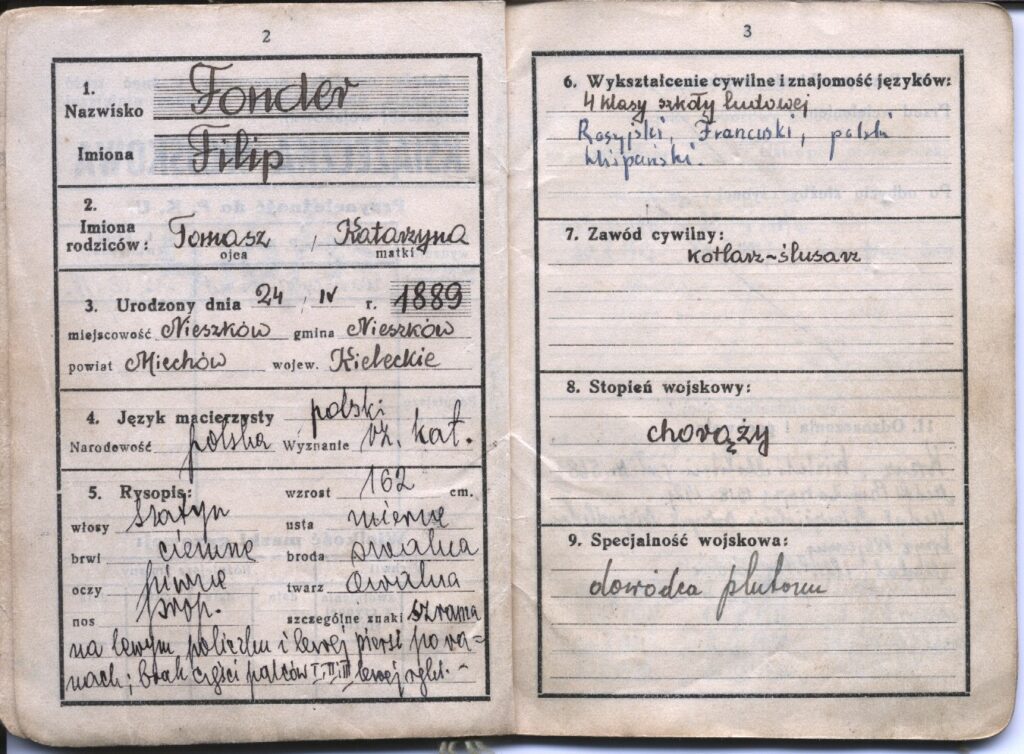 2
1.
Nazwisko Fonder
Imiona Filip
2.
Imiona
rodziców: Tomasz, Katarzyna
ojca matki
3. Urodzony dnia 24 / IV r. 1889
miejscowość Nieszków gmina Nieszków
powiat Miechów wojew. Kieleckie
4. Język macierzysty polski
Narodowość polska Wyznanie rz. kat.
5. Rysopis: wzrost 162 cm.
włosy szatyn usta mierne
brwi ciemne broda owalna
oczy piwne twarz owalna
nos prop. szczególne znaki szrama
na lewym policzku i lewej piersi po ra-
nach; brak części palców I, II, III lewej ręki.-
3
6. Wykształcenie cywilne i znajomość języków:
4 klasy szkoły ludowej
Rosyjski, Francuski, polski
Hiszpański.
7. Zawód cywilny:
kotlarz-ślusarz
8. Stopień wojskowy:
chorąży
9. Specjalność wojskowa:
dowódca plutonu